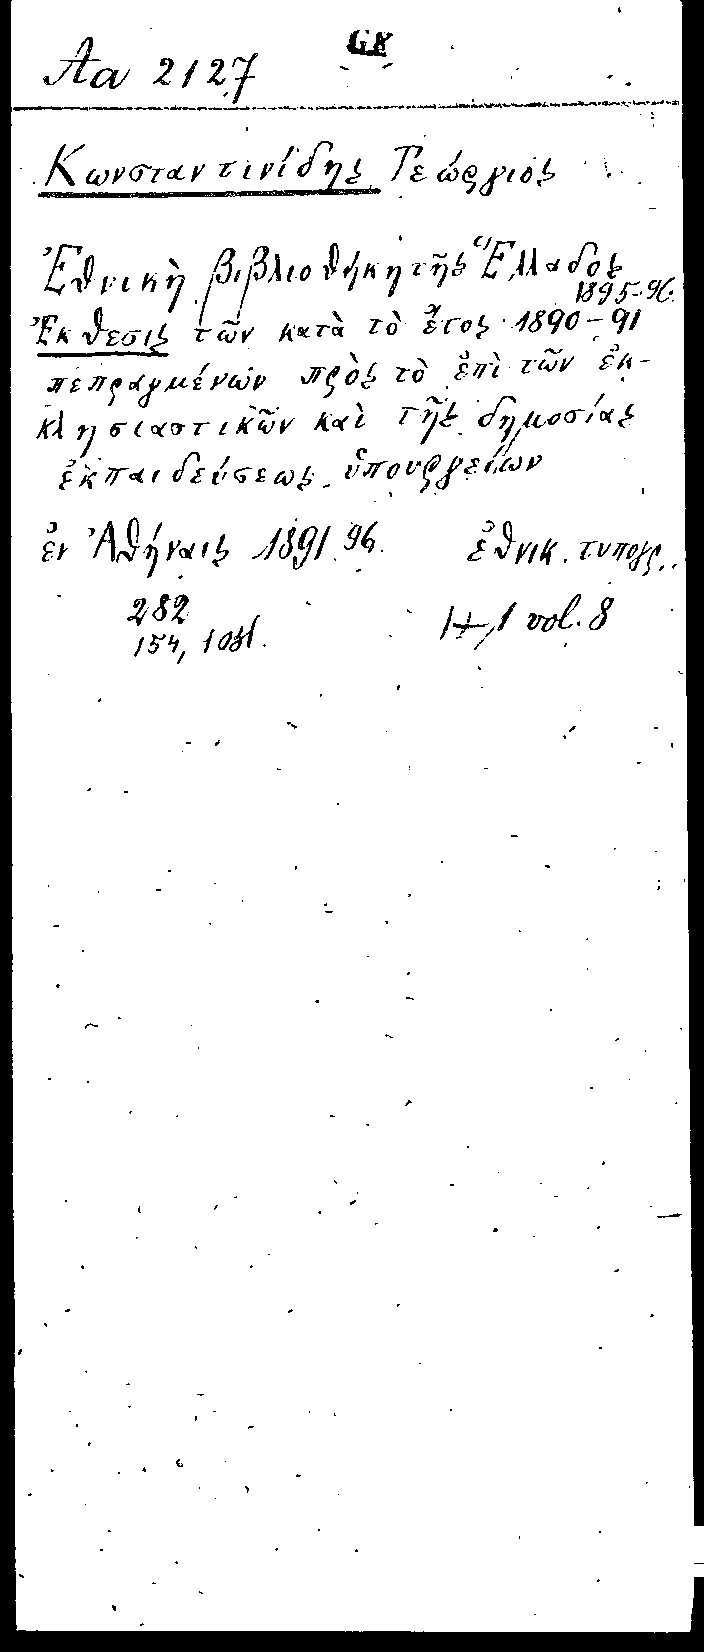 GR
Aa 2127
Κωνσταντινίδης Γεώργιος
Ἐθνικὴ βιβλιοθήκη τῆς Ἑλλαδος
1895-96
Ἐκθεσις τῶν κατὰ τὸ ἔτος 1890-91
πεπραγμένων πρὸς τὸ ἐπὶ τῶν ἐκ-
κλησιαστικῶν καὶ τῆς δημοσίας
ἐκπαιδεύσεως ὑπουργείων
ἐν Ἀθήναις 1891 96. ἐθνικ. τυπογρ..
282
154, vol. 8